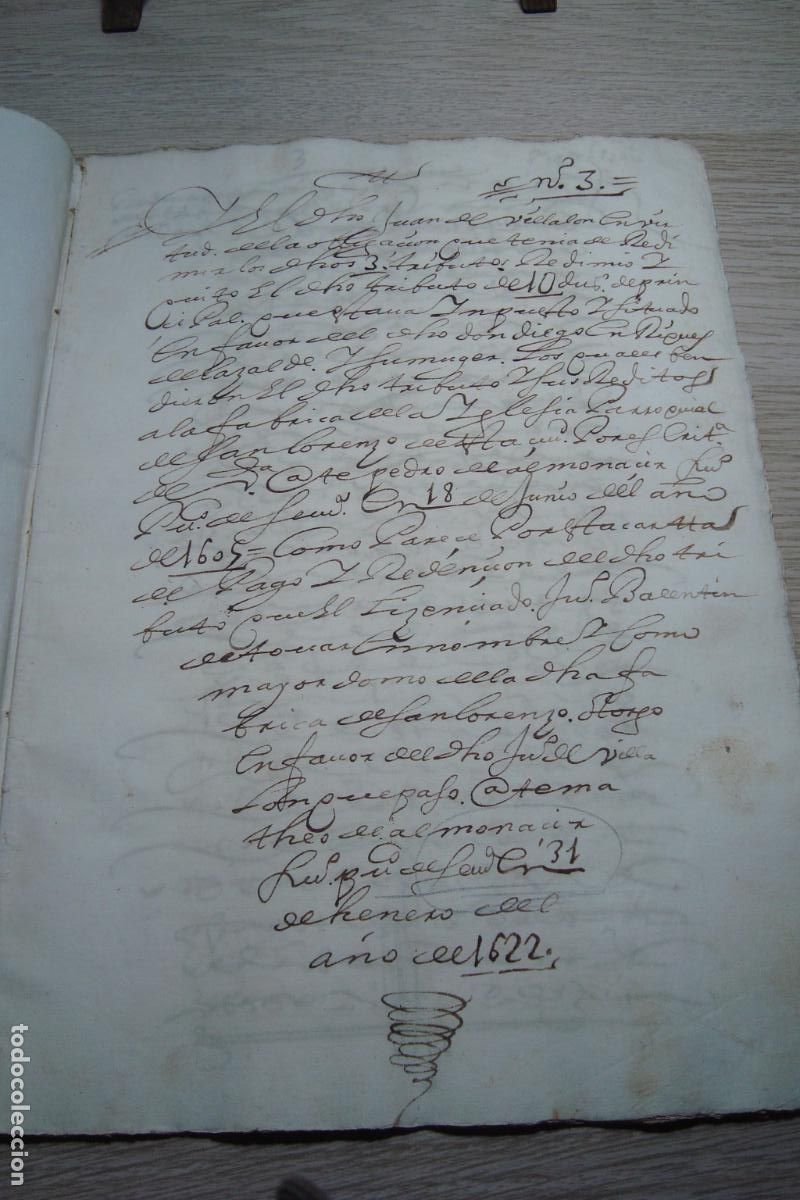 nº. 3. =
Y El dho Juan de Villalon En vir
tud. de la obligacion que tenia de Redi
mir los dhos 3. tributos Redimio Y
quito El dho tributo de 10 dus. de prin
cipal. que estava Ynpuesto Y situado
En favor del dho don diego Enrriques
Y su muger. Los quales ben
dieron El dho tributo Y sus Reditos
a la fabrica de la Yglesia Parroquial
de San Lorenzo de esta ciud. Por escritª.
de Vª. @te pedro de almonacir Esno.
Puº. de Sevª. En 18 de Junio del año
de 1605 = Como Parece Por esta carta
de Pago Y Redencion del dho tri
buto que El Lizenciado. Juº. Balentin
de tovar En nombre Y Como
mayordomo de la dha fa
brica de San Lorenzo. Otorgo
En favor del dho Juº. de Villa
lon que paso. @te ma
theo de almonacir
Esno. puº. de Sevª En 31
de henero del
año de 1622.
todocoleccion